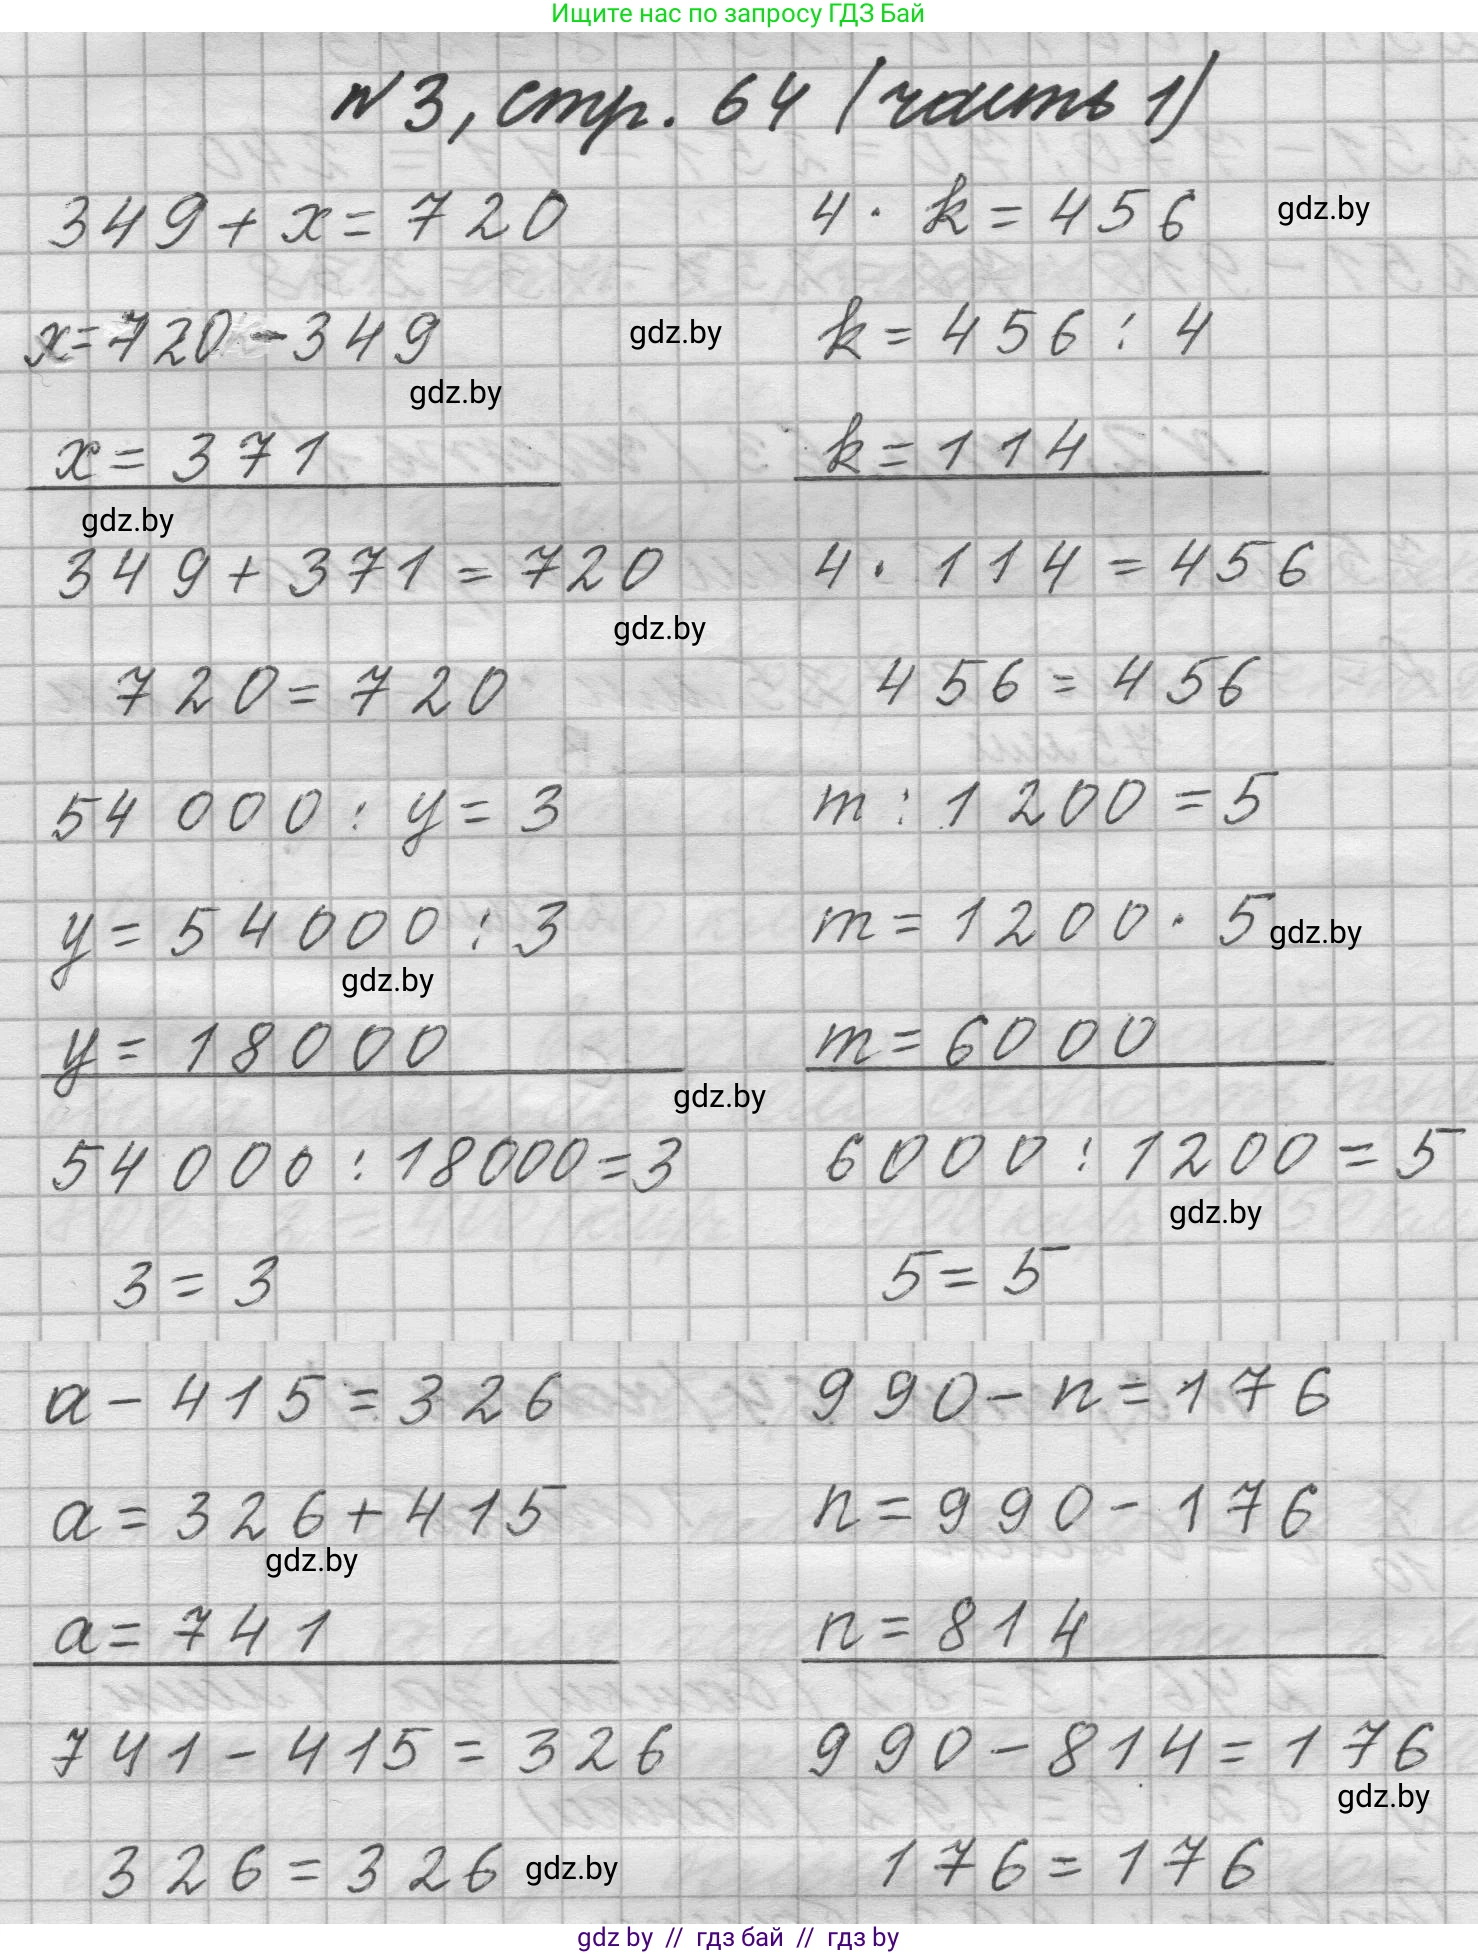 Ищите нас по запросу ГДЗ Бай
№3, стр. 64 (часть 1)
349 + x = 720
x = 720 - 349
x = 371
349 + 371 = 720
720 = 720
4 · k = 456
k = 456 : 4
k = 114
4 · 114 = 456
456 = 456
54 000 : y = 3
y = 54000 : 3
y = 18000
54 000 : 18000 = 3
3 = 3
m : 1200 = 5
m = 1200 · 5
m = 6000
6000 : 1200 = 5
5 = 5
a - 415 = 326
a = 326 + 415
a = 741
741 - 415 = 326
326 = 326
990 - n = 176
n = 990 - 176
n = 814
990 - 814 = 176
176 = 176
gdz.by
gdz.by
gdz.by
gdz.by
gdz.by
gdz.by
gdz.by
gdz.by
gdz.by
gdz.by
gdz.by
gdz.by
gdz.by // гдз бай // гдз by